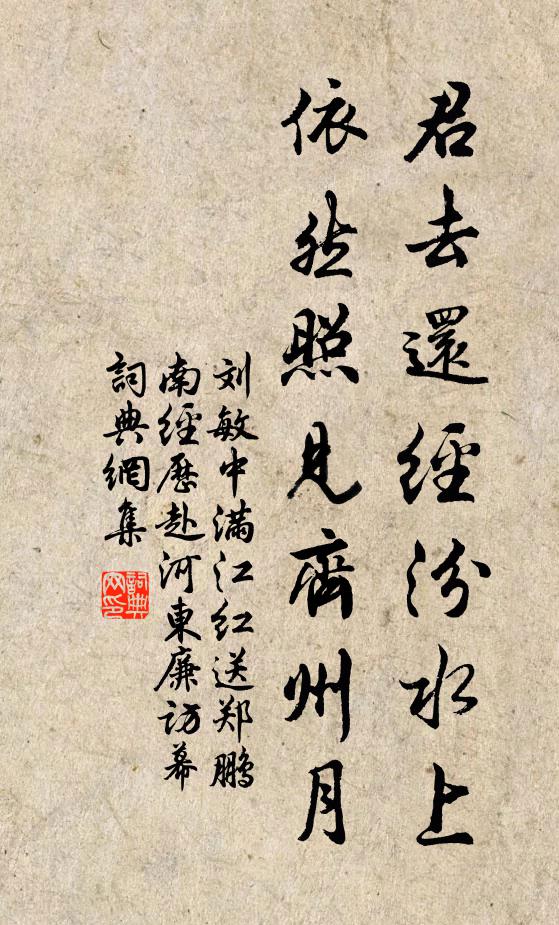 君去還經汾水上
依然照見齊州月
刘敏中满江红送郑鹏
南經歷赴河東廉訪幕
詞典網集
詞典網印